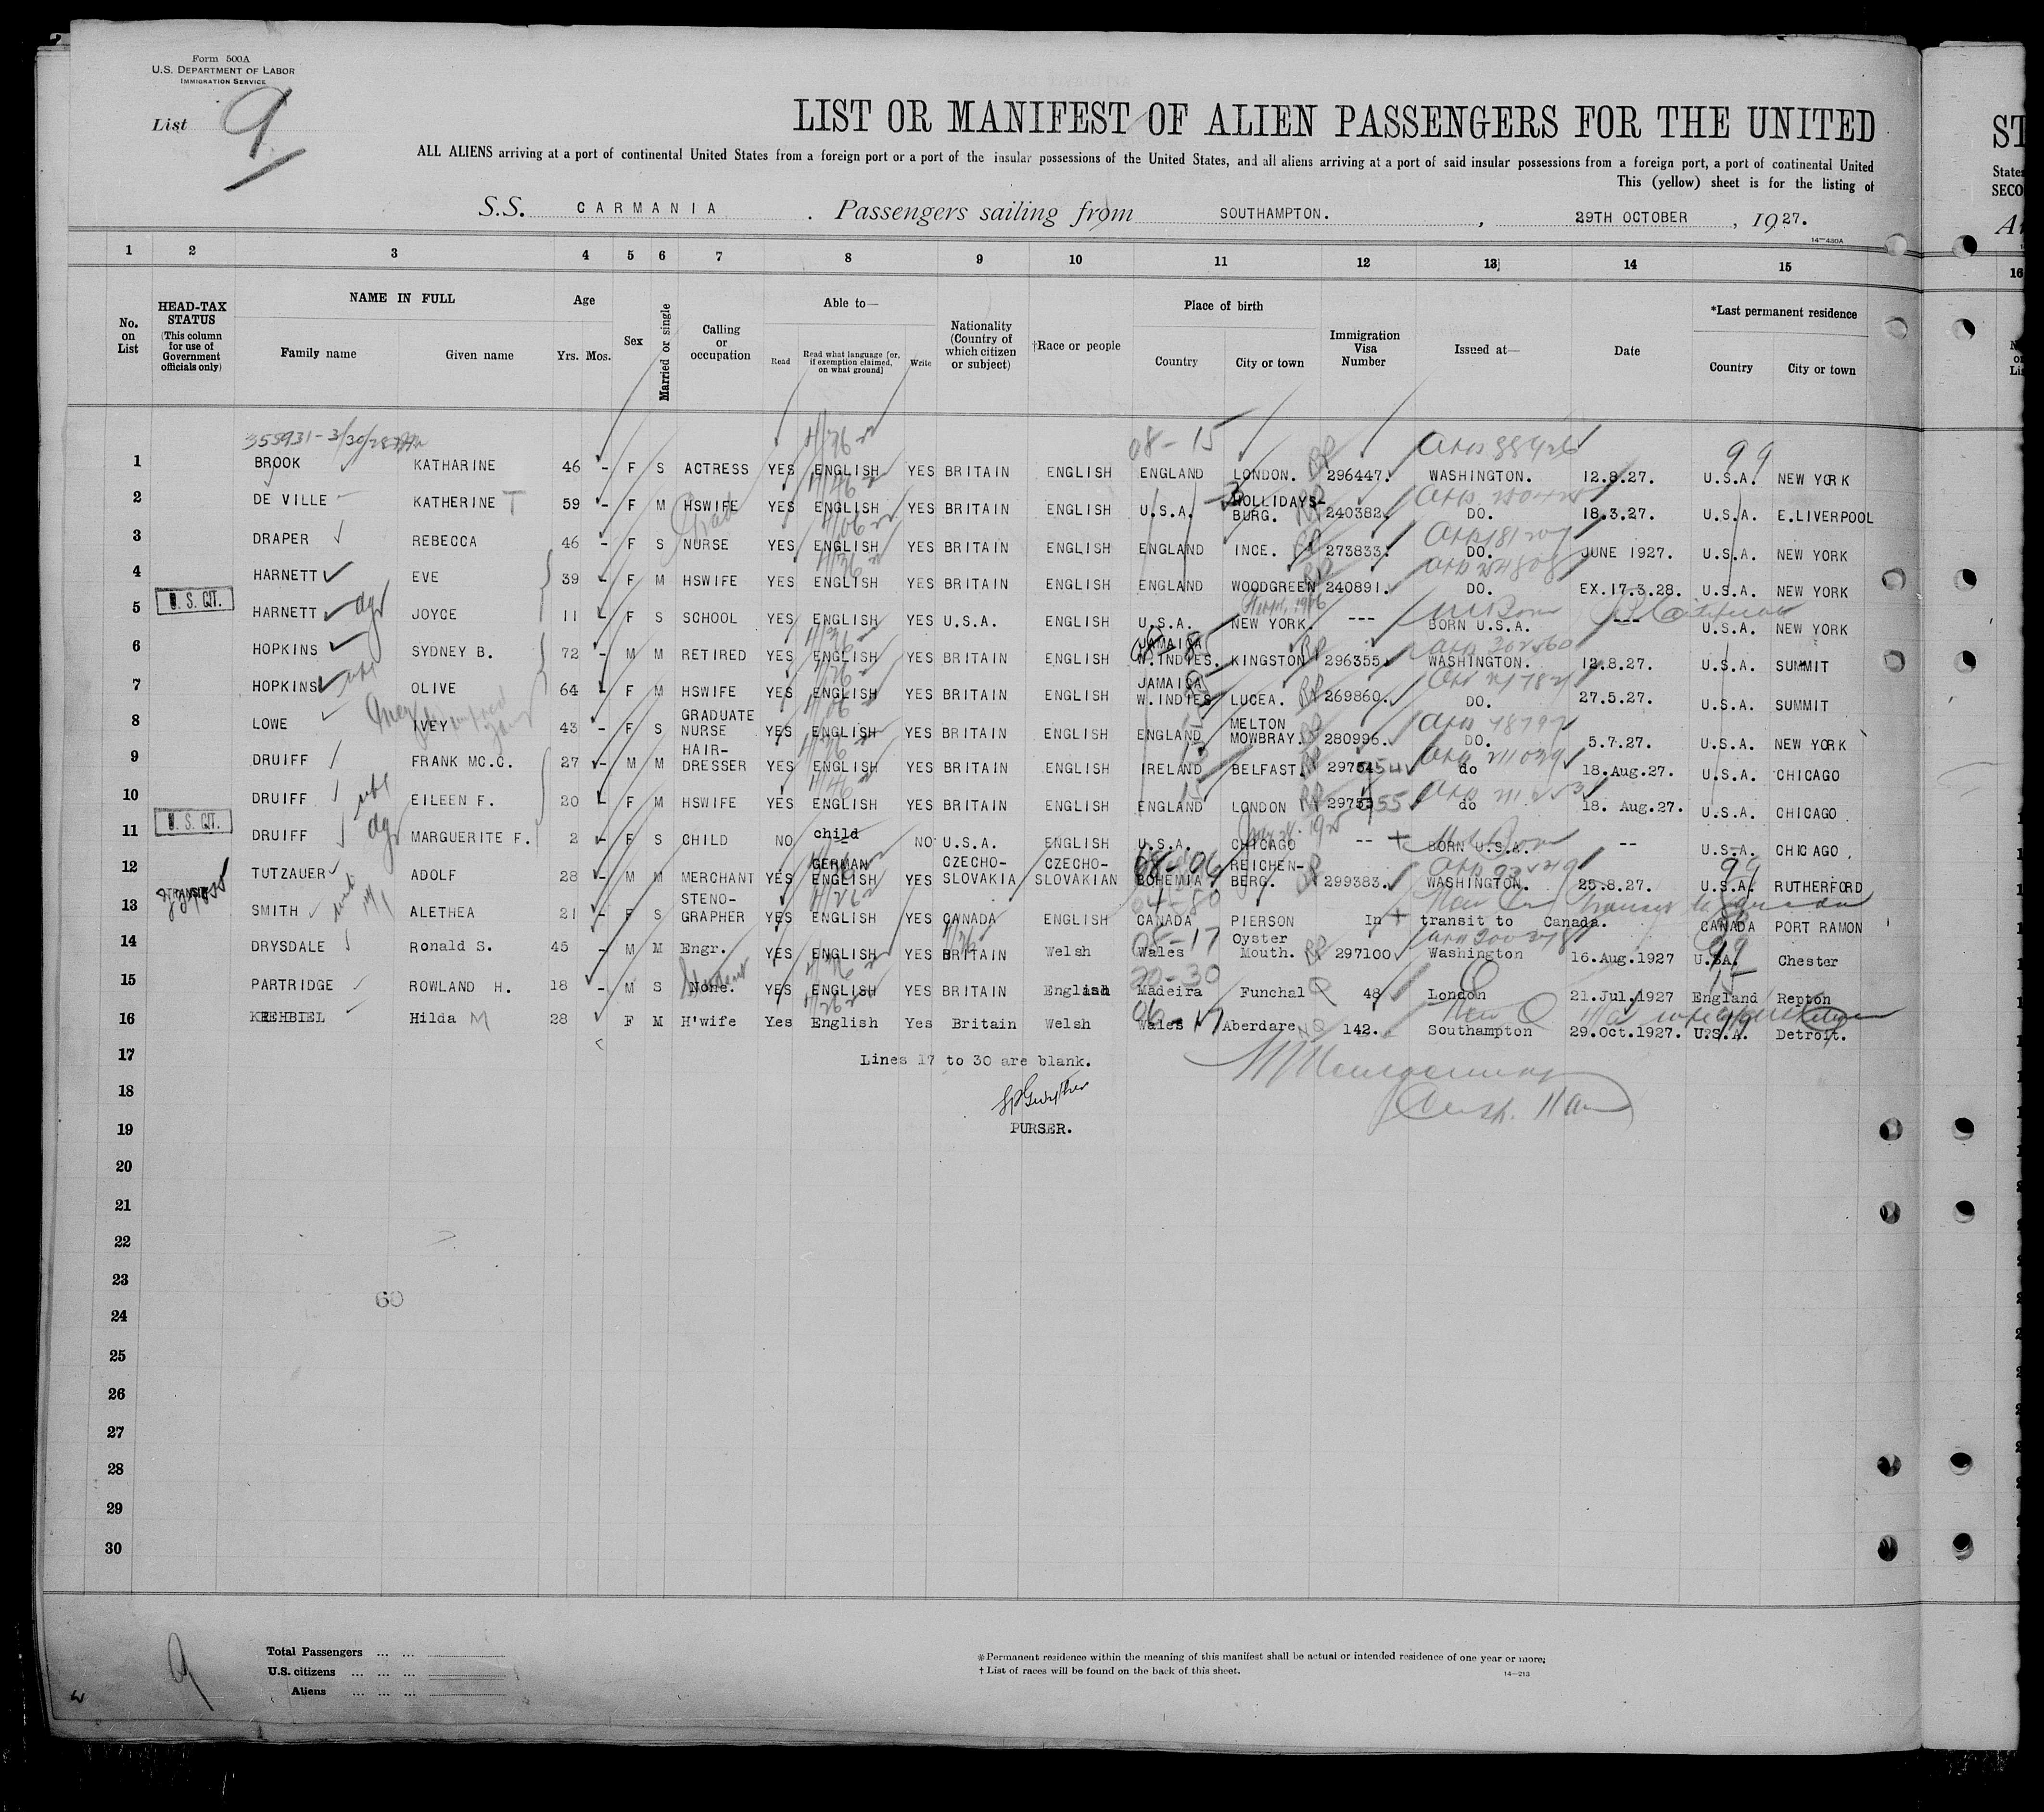 Form 500A
U.S. DEPARTMENT OF LABOR
IMMIGRATION SERVICE
List 9
LIST OR MANIFEST OF ALIEN PASSENGERS FOR THE UNITED
ALL ALIENS arriving at a port of continental United States from a foreign port or a port of the insular possessions of the United States, and all aliens arriving at a port of said insular possessions from a foreign port, a port of continental United
This (yellow) sheet is for the listing of
S.S. CARMANIA. Passengers sailing from SOUTHAMPTON., 29TH OCTOBER, 1927.
14—430A
1 2 3 4 5 6 7 8 9 10 11 12 13 14 15
No. on List HEAD-TAX STATUS (This column for use of Government officials only) NAME IN FULL Family name Given name Age Yrs. Mos. Sex Married or single Calling or occupation Able to— Read Read what language [or, if exemption claimed, on what ground] Write Nationality (Country of which citizen or subject) †Race or people Place of birth Country City or town Immigration Visa Number Issued at— Date *Last permanent residence Country City or town
355931 - 3/30/28
1 BROOK KATHARINE 46 - F S ACTRESS YES ENGLISH YES BRITAIN ENGLISH ENGLAND LONDON. 296447. WASHINGTON. 12.8.27. U.S.A. NEW YORK
2 DE VILLE KATHERINE T 59 - F M HSWIFE YES ENGLISH YES BRITAIN ENGLISH U.S.A. HOLLIDAYS-BURG. 240382. DO. 18.3.27. U.S.A. E.LIVERPOOL
3 DRAPER REBECCA 46 - F S NURSE YES ENGLISH YES BRITAIN ENGLISH ENGLAND INCE. 273833. DO. JUNE 1927. U.S.A. NEW YORK
4 HARNETT EVE 39 - F M HSWIFE YES ENGLISH YES BRITAIN ENGLISH ENGLAND WOODGREEN 240891. DO. EX.17.3.28. U.S.A. NEW YORK
5 U. S. CIT. HARNETT JOYCE 11 - F S SCHOOL YES ENGLISH YES U.S.A. ENGLISH U.S.A. NEW YORK. --- BORN U.S.A. --- U.S.A. NEW YORK
6 HOPKINS SYDNEY B. 72 - M M RETIRED YES ENGLISH YES BRITAIN ENGLISH JAMAICA W.INDIES. KINGSTON 296355. WASHINGTON. 12.8.27. U.S.A. SUMMIT
7 HOPKINS OLIVE 64 - F M HSWIFE YES ENGLISH YES BRITAIN ENGLISH JAMAICA W.INDIES LUCEA. 269860. DO. 27.5.27. U.S.A. SUMMIT
8 LOWE IVEY 43 - F S GRADUATE NURSE YES ENGLISH YES BRITAIN ENGLISH ENGLAND MELTON MOWBRAY. 280996. DO. 5.7.27. U.S.A. NEW YORK
9 DRUIFF FRANK MC.C. 27 - M M HAIR-DRESSER YES ENGLISH YES BRITAIN ENGLISH IRELAND BELFAST. do 18.Aug.27. U.S.A. CHICAGO
10 DRUIFF EILEEN F. 20 - F M HSWIFE YES ENGLISH YES BRITAIN ENGLISH ENGLAND LONDON do 18. Aug.27. U.S.A. CHICAGO
11 U. S. CIT. DRUIFF MARGUERITE F. 2 - F S CHILD NO child NO U.S.A. ENGLISH U.S.A. CHICAGO -- BORN U.S.A. -- U.S.A. CHICAGO
12 TUTZAUER ADOLF 28 - M M MERCHANT YES GERMAN ENGLISH YES CZECHO-SLOVAKIA CZECHO-SLOVAKIAN BOHEMIA REICHEN-BERG. 299383. WASHINGTON. 25.8.27. U.S.A. RUTHERFORD
13 TRANSIT SMITH ALETHEA 21 - F S STENO-GRAPHER YES ENGLISH YES CANADA ENGLISH CANADA PIERSON In transit to Canada. CANADA PORT RAMON
14 DRYSDALE Ronald S. 45 - M M Engr. YES ENGLISH YES BRITAIN Welsh Wales Oyster Mouth. 297100 Washington 16.Aug.1927 U.SA. Chester
15 PARTRIDGE ROWLAND H. 18 - M S None. Student YES ENGLISH YES BRITAIN English Madeira Funchal 48 London 21.Jul.1927 England Repton
16 KREHBIEL Hilda M 28 F M H'wife Yes English Yes Britain Welsh Wales Aberdare 142. Southampton 29.Oct.1927. U.S.A. Detroit.
17 Lines 17 to 30 are blank.
18
19 PURSER.
20
21
22
23
60
24
25
26
27
28
29
30
9
Total Passengers ... ...
U.S. citizens ... ... ...
Aliens ... ... ...
*Permanent residence within the meaning of this manifest shall be actual or intended residence of one year or more;
†List of races will be found on the back of this sheet.
14—213